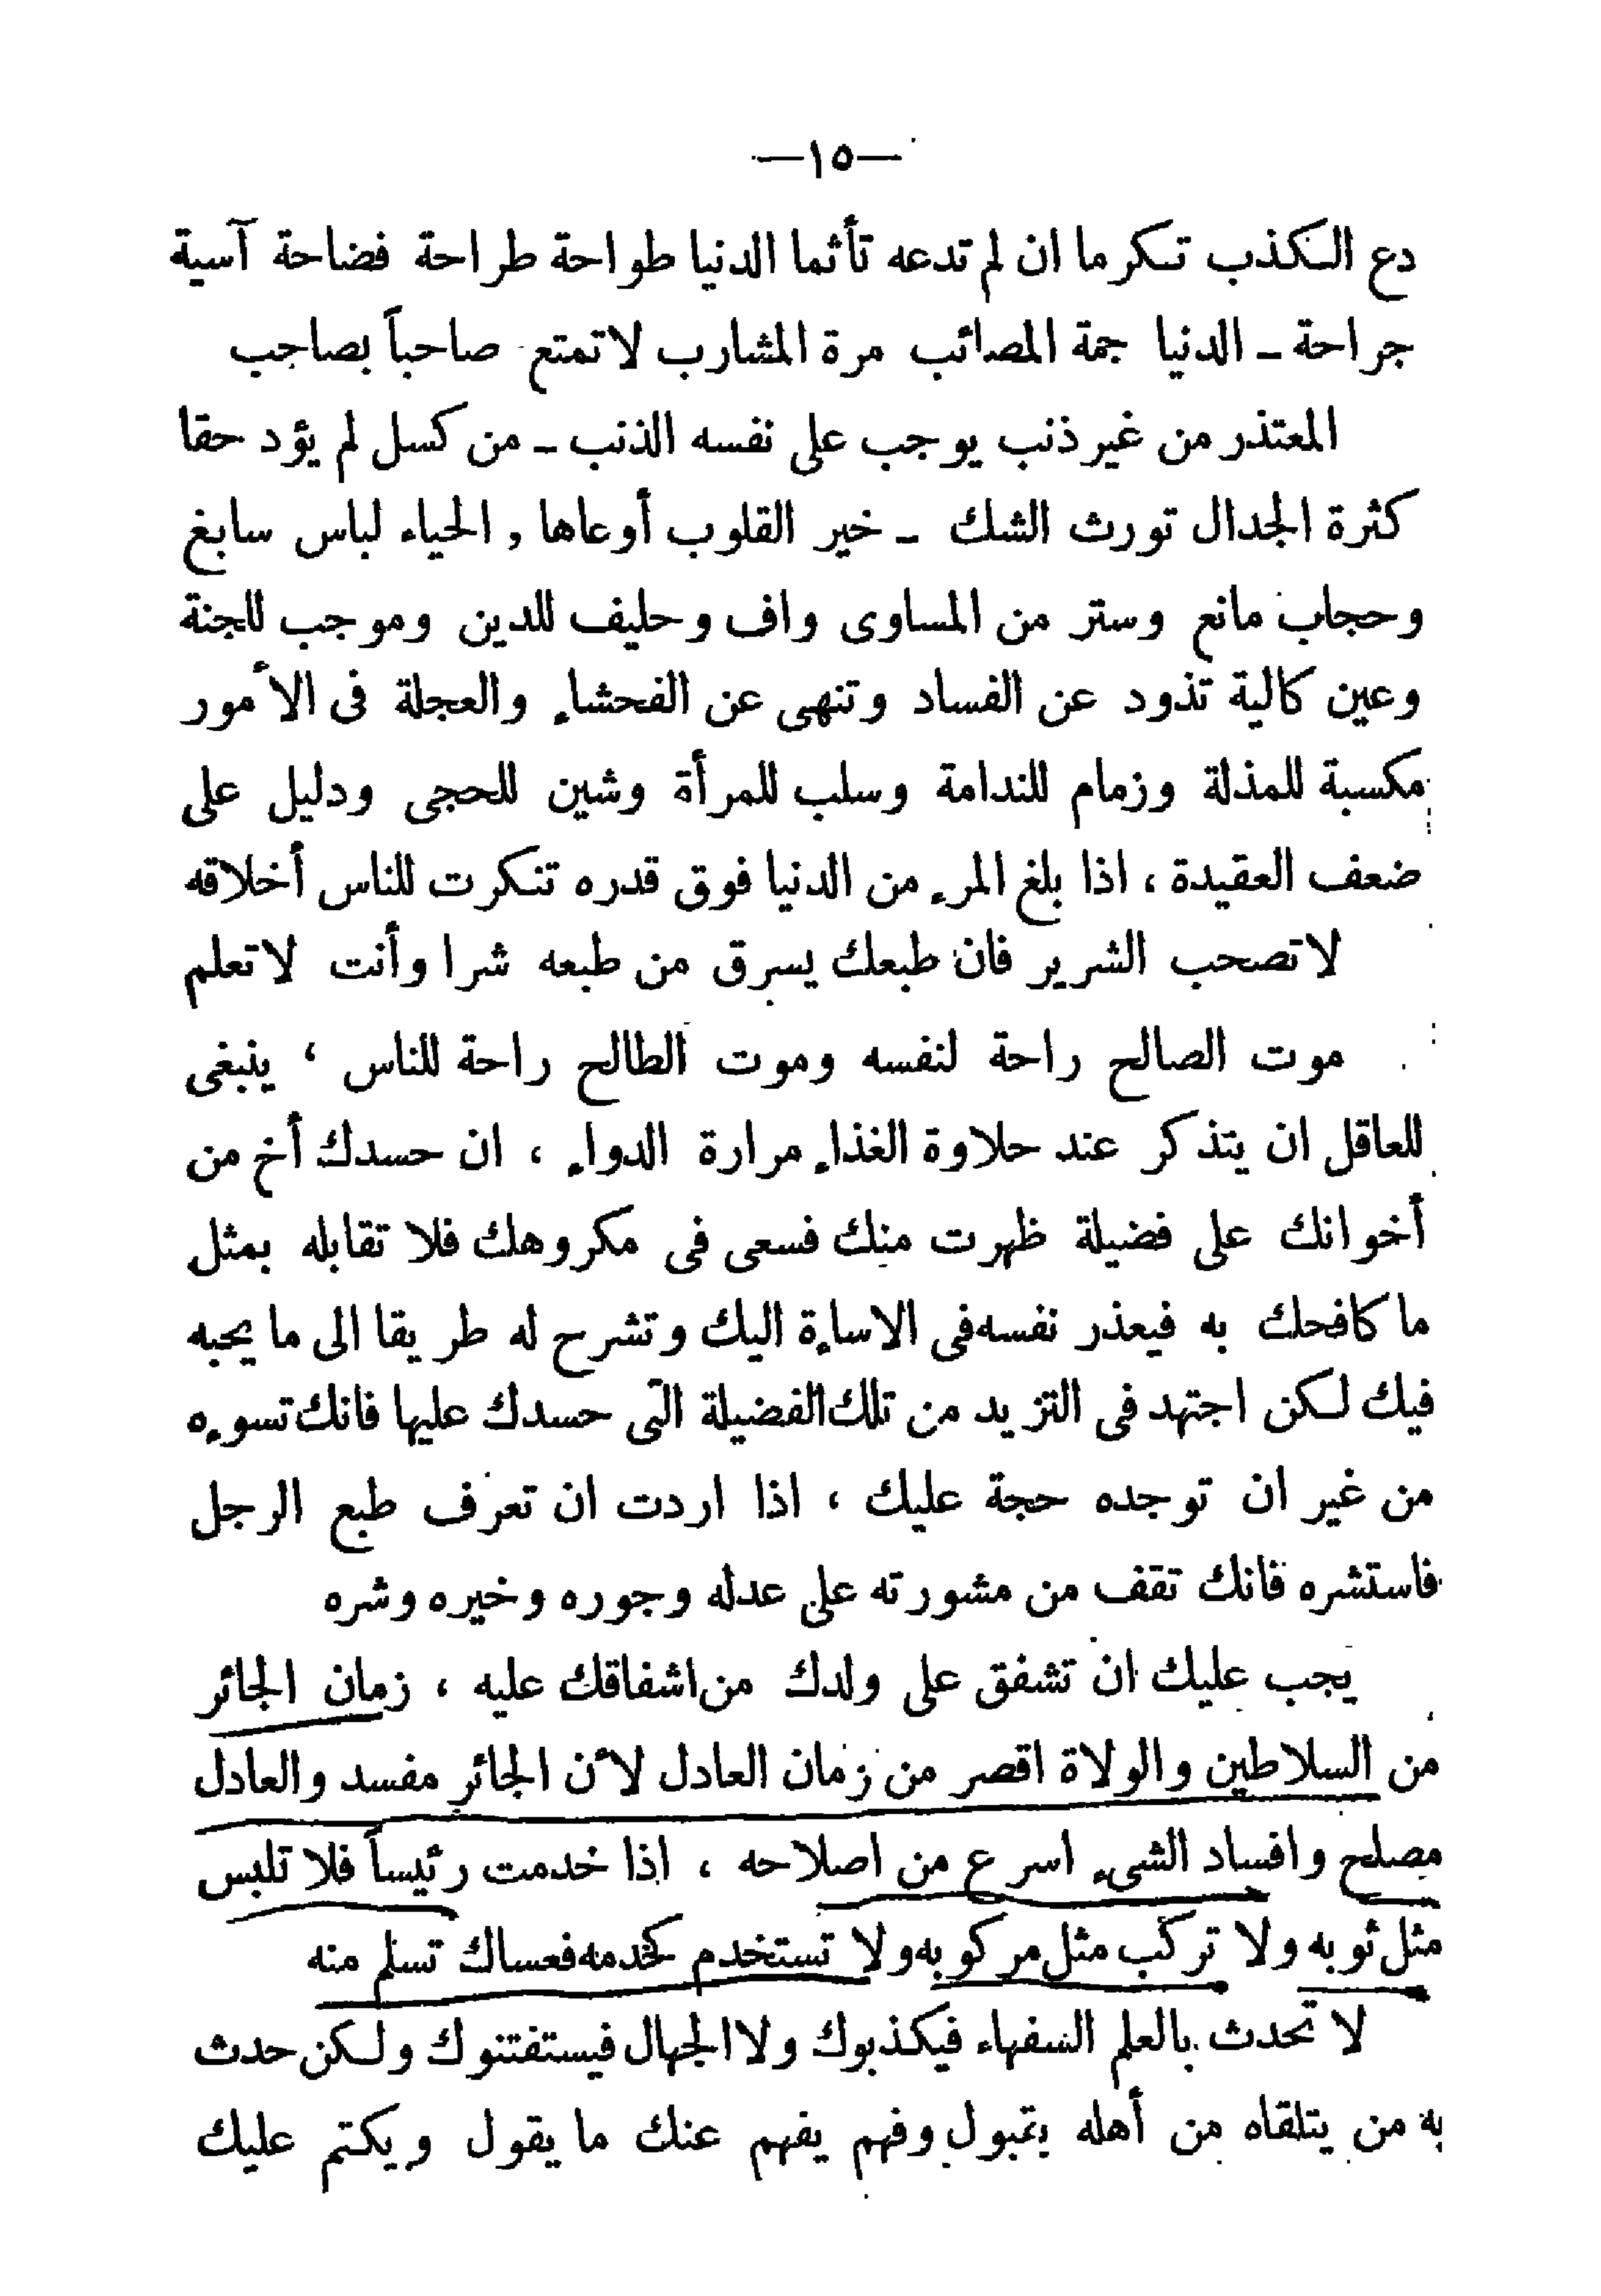 —١٥—
دع الكذب تكرما ان لم تدعه تأثما الدنيا طواحة طراحة فضاحة آسية
جراحة ــ الدنيا جمة المصائب مرة المشارب لاتمتع صاحباً بصاحب
المعتذر من غير ذنب يوجب على نفسه الذنب ــ من كسل لم يؤد حقا
كثرة الجدال تورث الشك ــ خير القلوب أوعاها , الحياء لباس سابغ
وحجاب مانع وستر من المساوى واف وحليف للدين وموجب للجنة
وعين كالية تذود عن الفساد وتنهى عن الفحشاء والعجلة فى الأمور
مكسبة للمذلة وزمام للندامة وسلب للمرأة وشين للحجى ودليل على
ضعف العقيدة ، اذا بلغ المرء من الدنيا فوق قدره تنكرت للناس أخلاقه
لاتصحب الشرير فان طبعك يسرق من طبعه شرا وأنت لاتعلم
موت الصالح راحة لنفسه وموت الطالح راحة للناس ، ينبغى
للعاقل ان يتذكر عند حلاوة الغذاء مرارة الدواء ، ان حسدك أخ من
أخوانك على فضيلة ظهرت منك فسعى فى مكروهك فلا تقابله بمثل
ما كافحك به فيعذر نفسه فى الاساءة اليك وتشرح له طريقا الى ما يحبه
فيك لكن اجتهد فى التزيد من تلك الفضيلة التى حسدك عليها فانك تسوءه
من غير ان توجده حجة عليك ، اذا اردت ان تعرف طبع الرجل
فاستشره فانك تقف من مشورته على عدله وجوره وخيره وشره
يجب عليك ان تشفق على ولدك من اشفاقك عليه ، زمان الجائر
من السلاطين والولاة اقصر من زمان العادل لأن الجائر مفسد والعادل
مصلح وافساد الشىء اسرع من اصلاحه ، اذا خدمت رئيساً فلا تلبس
مثل ثوبه ولا تركب مثل مركوبه ولا تستخدم كخدمه فعساك تسلم منه
لا تحدث بالعلم السفهاء فيكذبوك ولا الجهال فيستفتنوك ولكن حدث
به من يتلقاه من أهله بقبول وفهم يفهم عنك ما يقول ويكتم عليك